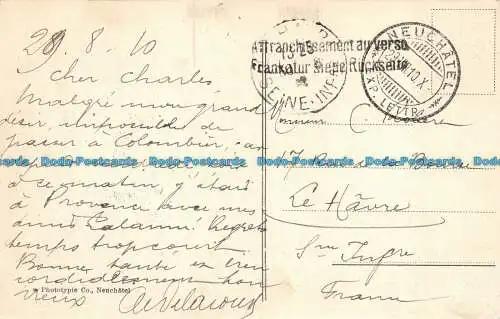 29.8-10
Cher Charles
Malgré mon grand
désir, impossible de
passer à Colombier, car
Dodo-Postcards Dodo-Postcards Dodo-Postcards Dodo-Postcards Dodo-Postcards
à ce matin, j'étais
à Provence avec mes
amis Calamri. Regret
temps trop court.
Bonne santé et bien
cordialement
vieux
Phototypie Co., Neuchâtel
Affranchissement au verso
Frankatur siehe Rückseite
SEINE-INF
NEUCHÂTEL
EXP. LETTR.
Monsieur C.
7 Rue de la Bourse
Le Hâvre
Sne Infre
France